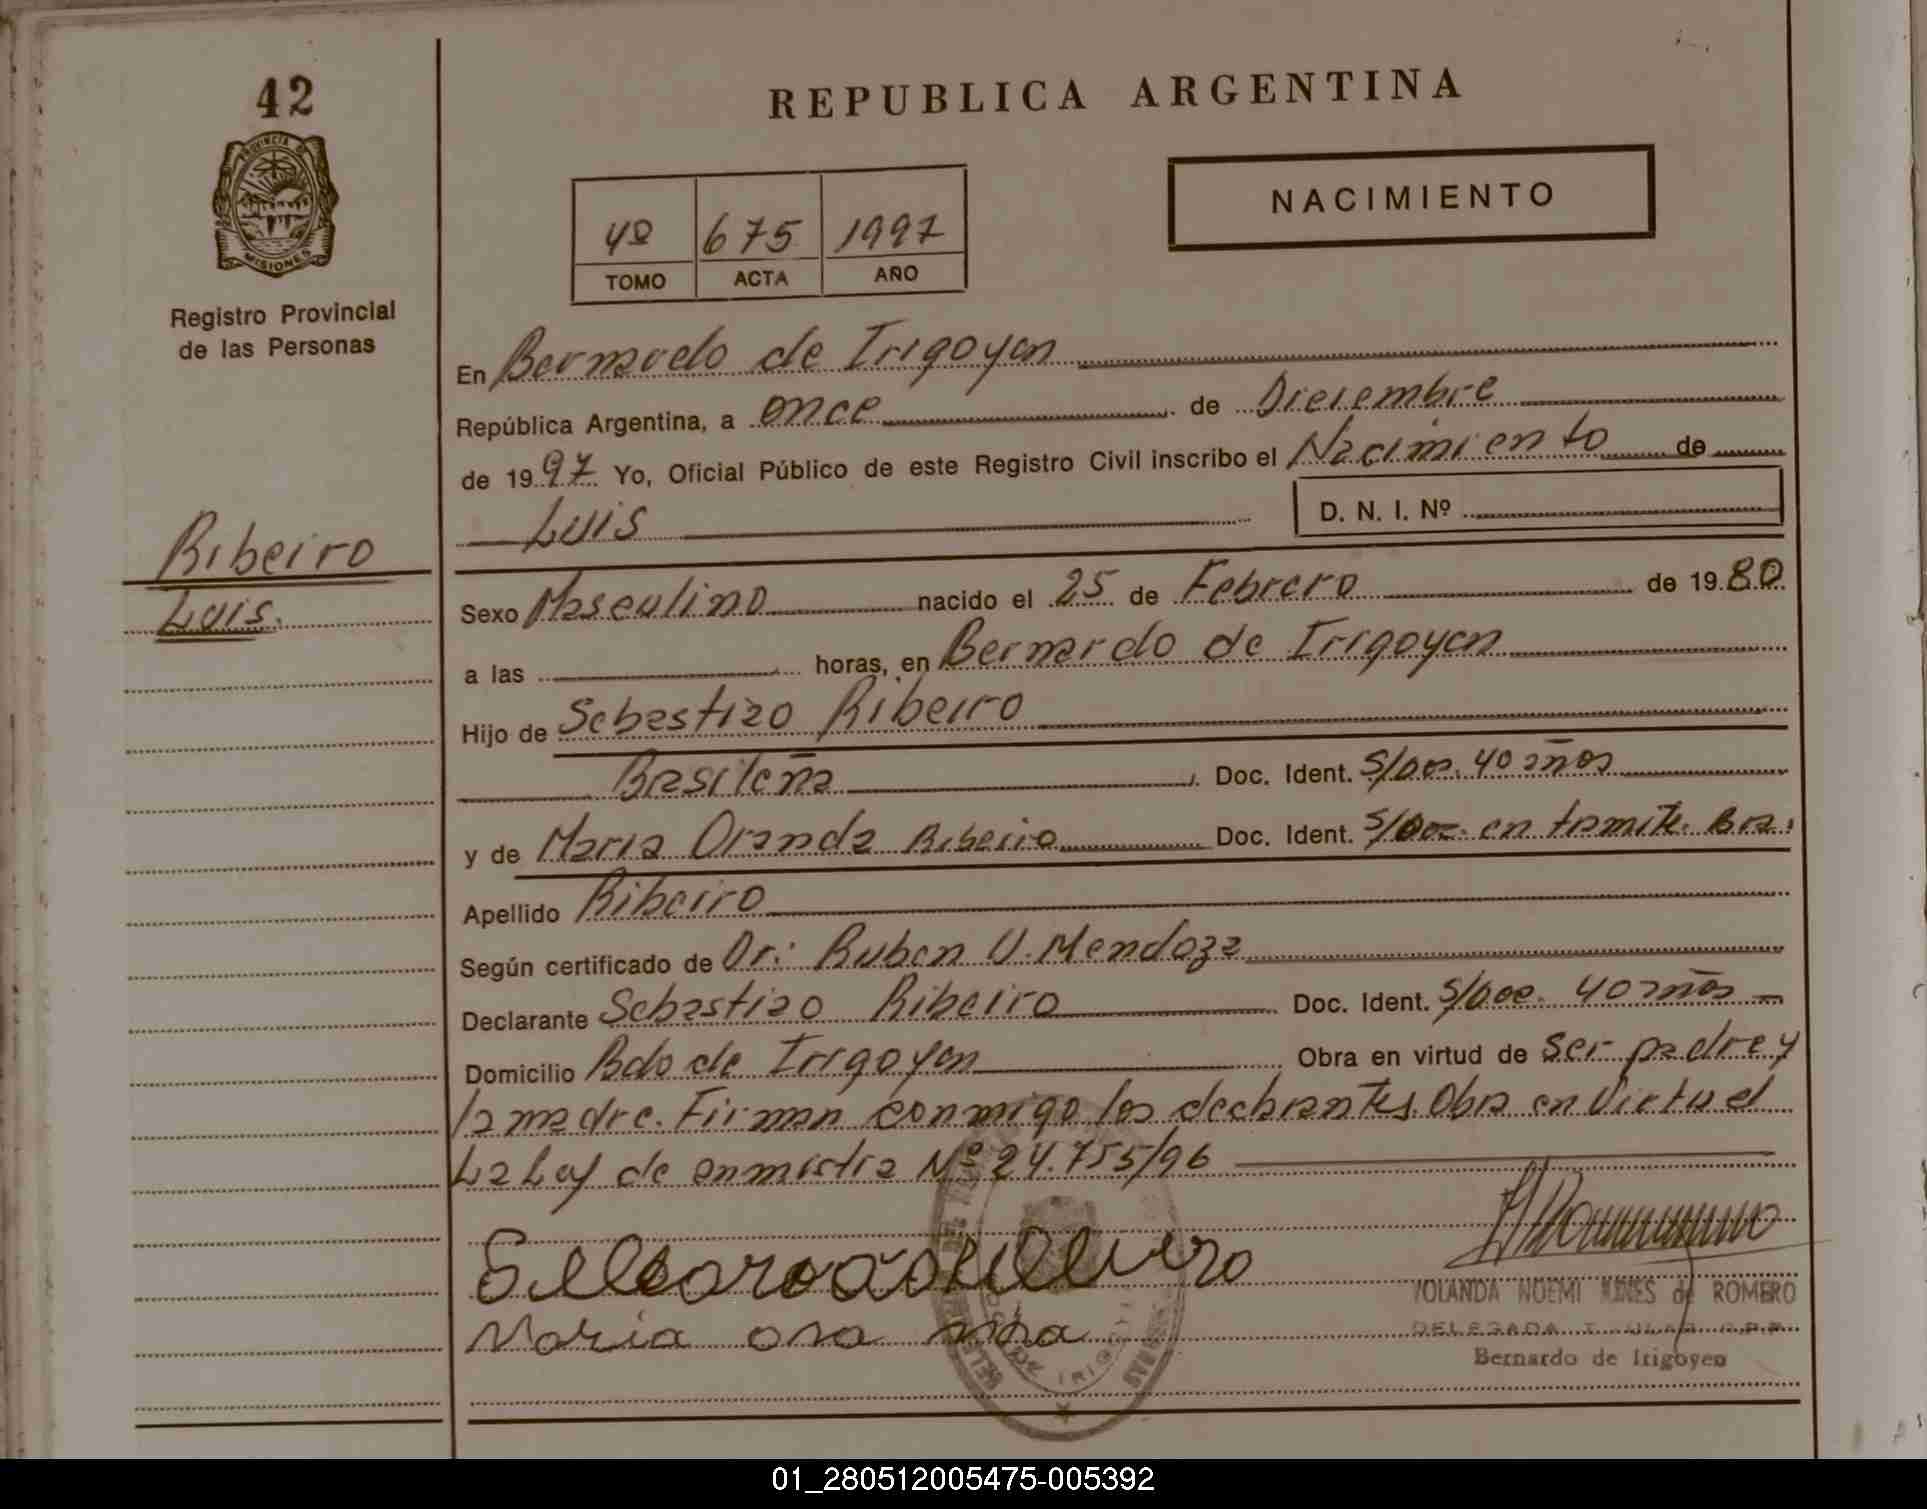 42
PROVINCIA DE
MISIONES
Registro Provincial
de las Personas
Ribeiro
Luis.
REPUBLICA ARGENTINA
NACIMIENTO
4º 675 1997
TOMO ACTA AÑO
En Bernardo de Irigoyen
República Argentina, a once de Diciembre
de 1997 Yo, Oficial Público de este Registro Civil inscribo el Nacimiento de
Luis D. N. I. Nº
Sexo Masculino nacido el 25 de Febrero de 1980
a las horas, en Bernardo de Irigoyen
Hijo de Sebastiao Ribeiro
Brasileña Doc. Ident. S/Doc. 40 años
y de Maria Oranda Ribeiro Doc. Ident. S/Doc. en tramite. Bra.
Apellido Ribeiro
Según certificado de Dr: Ruben V. Mendoza
Declarante Sebastiao Ribeiro Doc. Ident. S/Doc. 40 años
Domicilio Bdo de Irigoyen Obra en virtud de ser padre y
la madre. Firman conmigo los declarantes. Obra en Virtud
La Ley de enmistia Nº 24.755/96
Maria
YOLANDA NOEMI de ROMERO
DELEGADA TITULAR R.P.P.
Bernardo de Irigoyen
01_280512005475-005392